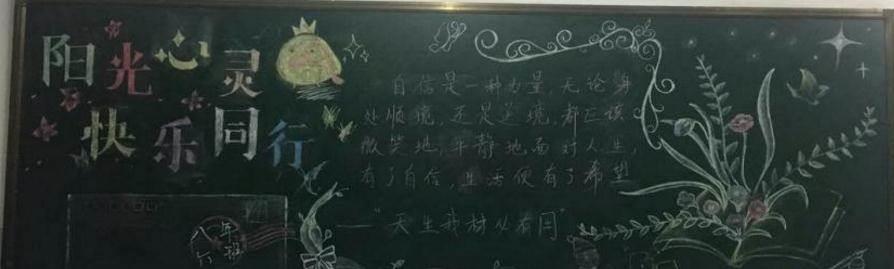 阳光心灵
快乐同行
自信是一种力量,无论身
处顺境,还是逆境,都应该
微笑地,平静地面对人生,
有了自信,生活便有了希望
——“天生我材必有用”
八年
六班